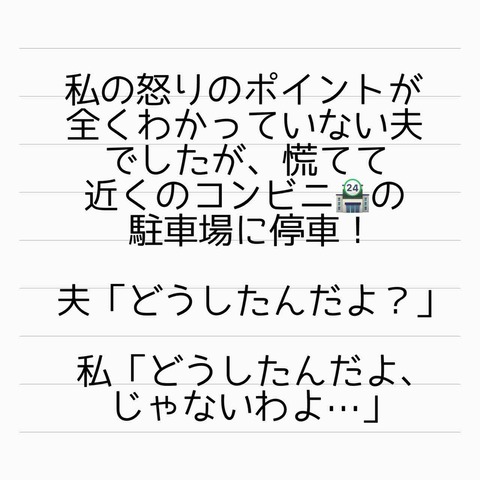 私の怒りのポイントが
全くわかっていない夫
でしたが、慌てて
近くのコンビニ🏪の
駐車場に停車！
夫「どうしたんだよ？」
私「どうしたんだよ、
じゃないわよ…」